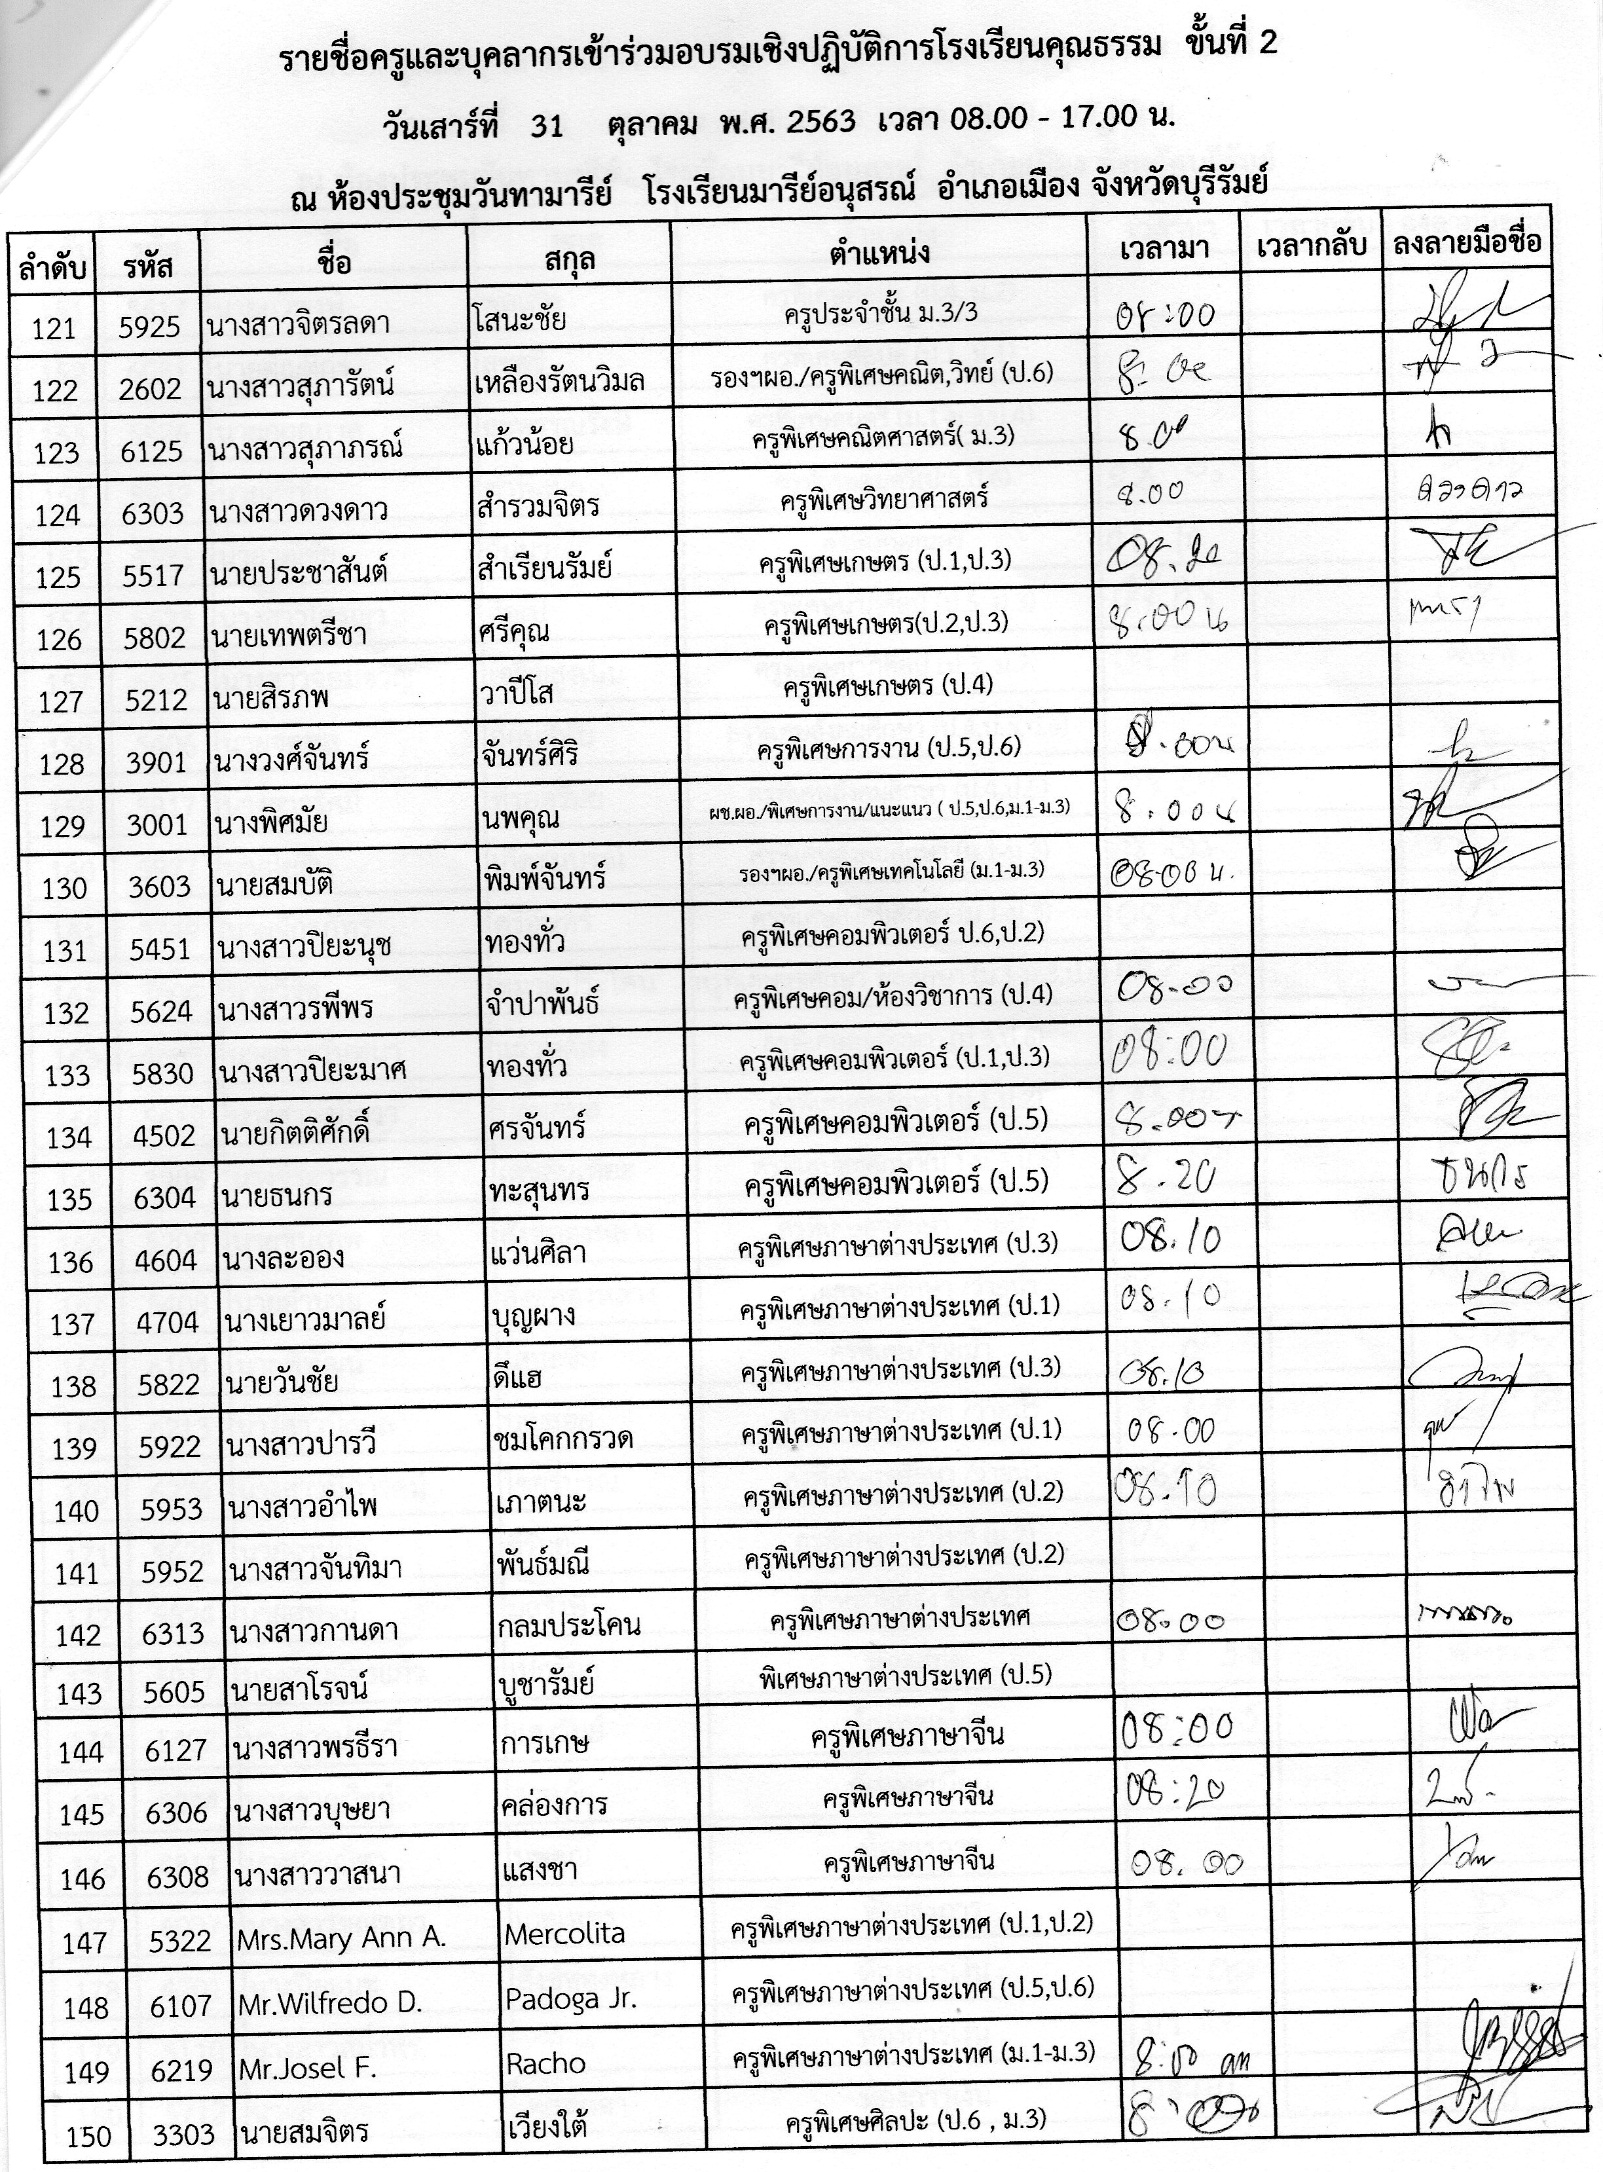 รายชื่อครูและบุคลากรเข้าร่วมอบรมเชิงปฏิบัติการโรงเรียนคุณธรรม ขั้นที่ 2
วันเสาร์ที่ 31 ตุลาคม พ.ศ. 2563 เวลา 08.00 - 17.00 น.
ณ ห้องประชุมวันทามารีย์ โรงเรียนมารีย์อนุสรณ์ อำเภอเมือง จังหวัดบุรีรัมย์
ลำดับ รหัส ชื่อ สกุล ตำแหน่ง เวลามา เวลากลับ ลงลายมือชื่อ
121 5925 นางสาวจิตรลดา โสนะชัย ครูประจำชั้น ม.3/3 08:00
122 2602 นางสาวสุภารัตน์ เหลืองรัตนวิมล รองฯผอ./ครูพิเศษคณิต,วิทย์ (ป.6)
123 6125 นางสาวสุภาภรณ์ แก้วน้อย ครูพิเศษคณิตศาสตร์( ม.3) 8.00
124 6303 นางสาวดวงดาว สำรวมจิตร ครูพิเศษวิทยาศาสตร์ 8.00 ดวงดาว
125 5517 นายประชาสันต์ สำเรียนรัมย์ ครูพิเศษเกษตร (ป.1,ป.3) 08.20
126 5802 นายเทพตรีชา ศรีคุณ ครูพิเศษเกษตร(ป.2,ป.3) 8.00 น
127 5212 นายสิรภพ วาปีโส ครูพิเศษเกษตร (ป.4)
128 3901 นางวงศ์จันทร์ จันทร์ศิริ ครูพิเศษการงาน (ป.5,ป.6) 8.00น
129 3001 นางพิศมัย นพคุณ ผช.ผอ./พิเศษการงาน/แนะแนว ( ป.5,ป.6,ม.1-ม.3) 8.00น
130 3603 นายสมบัติ พิมพ์จันทร์ รองฯผอ./ครูพิเศษเทคโนโลยี (ม.1-ม.3) 08.00 น.
131 5451 นางสาวปิยะนุช ทองทั่ว ครูพิเศษคอมพิวเตอร์ ป.6,ป.2)
132 5624 นางสาวรพีพร จำปาพันธ์ ครูพิเศษคอม/ห้องวิชาการ (ป.4) 08.00
133 5830 นางสาวปิยะมาศ ทองทั่ว ครูพิเศษคอมพิวเตอร์ (ป.1,ป.3) 08:00
134 4502 นายกิตติศักดิ์ ศรจันทร์ ครูพิเศษคอมพิวเตอร์ (ป.5) 8.00น
135 6304 นายธนกร ทะสุนทร ครูพิเศษคอมพิวเตอร์ (ป.5) 8.20 ธนกร
136 4604 นางละออง แว่นศิลา ครูพิเศษภาษาต่างประเทศ (ป.3) 08.10
137 4704 นางเยาวมาลย์ บุญผาง ครูพิเศษภาษาต่างประเทศ (ป.1) 08.10
138 5822 นายวันชัย ดีแฮ ครูพิเศษภาษาต่างประเทศ (ป.3) 08.10
139 5922 นางสาวปารวี ชมโคกกรวด ครูพิเศษภาษาต่างประเทศ (ป.1) 08.00
140 5953 นางสาวอำไพ เภาตนะ ครูพิเศษภาษาต่างประเทศ (ป.2) 08.10 อำไพ
141 5952 นางสาวจันทิมา พันธ์มณี ครูพิเศษภาษาต่างประเทศ (ป.2)
142 6313 นางสาวกานดา กลมประโคน ครูพิเศษภาษาต่างประเทศ 08.00
143 5605 นายสาโรจน์ บูชารัมย์ พิเศษภาษาต่างประเทศ (ป.5)
144 6127 นางสาวพรธีรา การเกษ ครูพิเศษภาษาจีน 08:00
145 6306 นางสาวบุษยา คล่องการ ครูพิเศษภาษาจีน 08:20
146 6308 นางสาววาสนา แสงชา ครูพิเศษภาษาจีน 08.00
147 5322 Mrs.Mary Ann A. Mercolita ครูพิเศษภาษาต่างประเทศ (ป.1,ป.2)
148 6107 Mr.Wilfredo D. Padoga Jr. ครูพิเศษภาษาต่างประเทศ (ป.5,ป.6)
149 6219 Mr.Josel F. Racho ครูพิเศษภาษาต่างประเทศ (ม.1-ม.3) 8:00 am
150 3303 นายสมจิตร เวียงใต้ ครูพิเศษศิลปะ (ป.6 , ม.3)